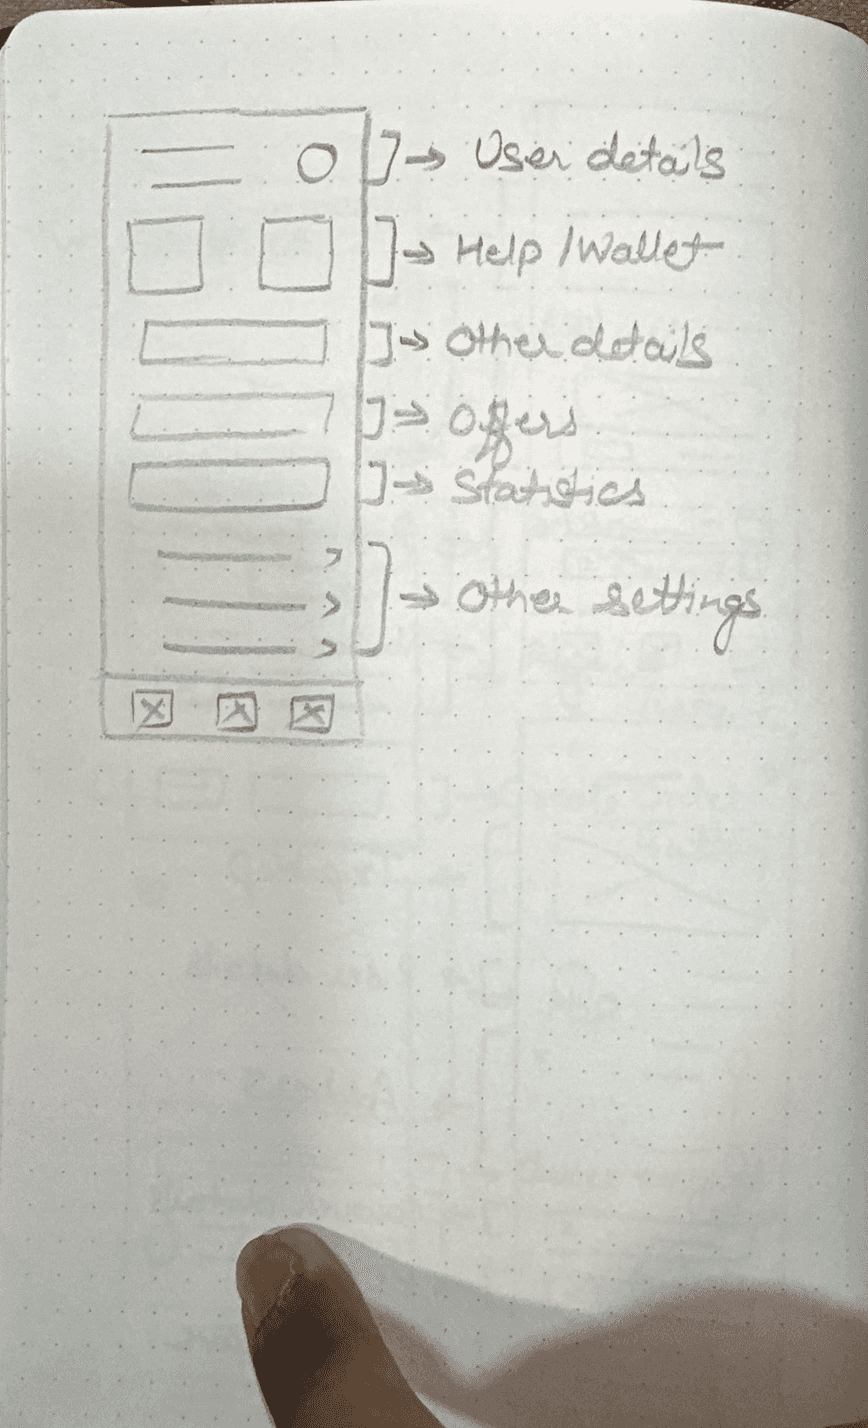 User details
Help/Wallet
Other details
Offers
Statistics
Other settings